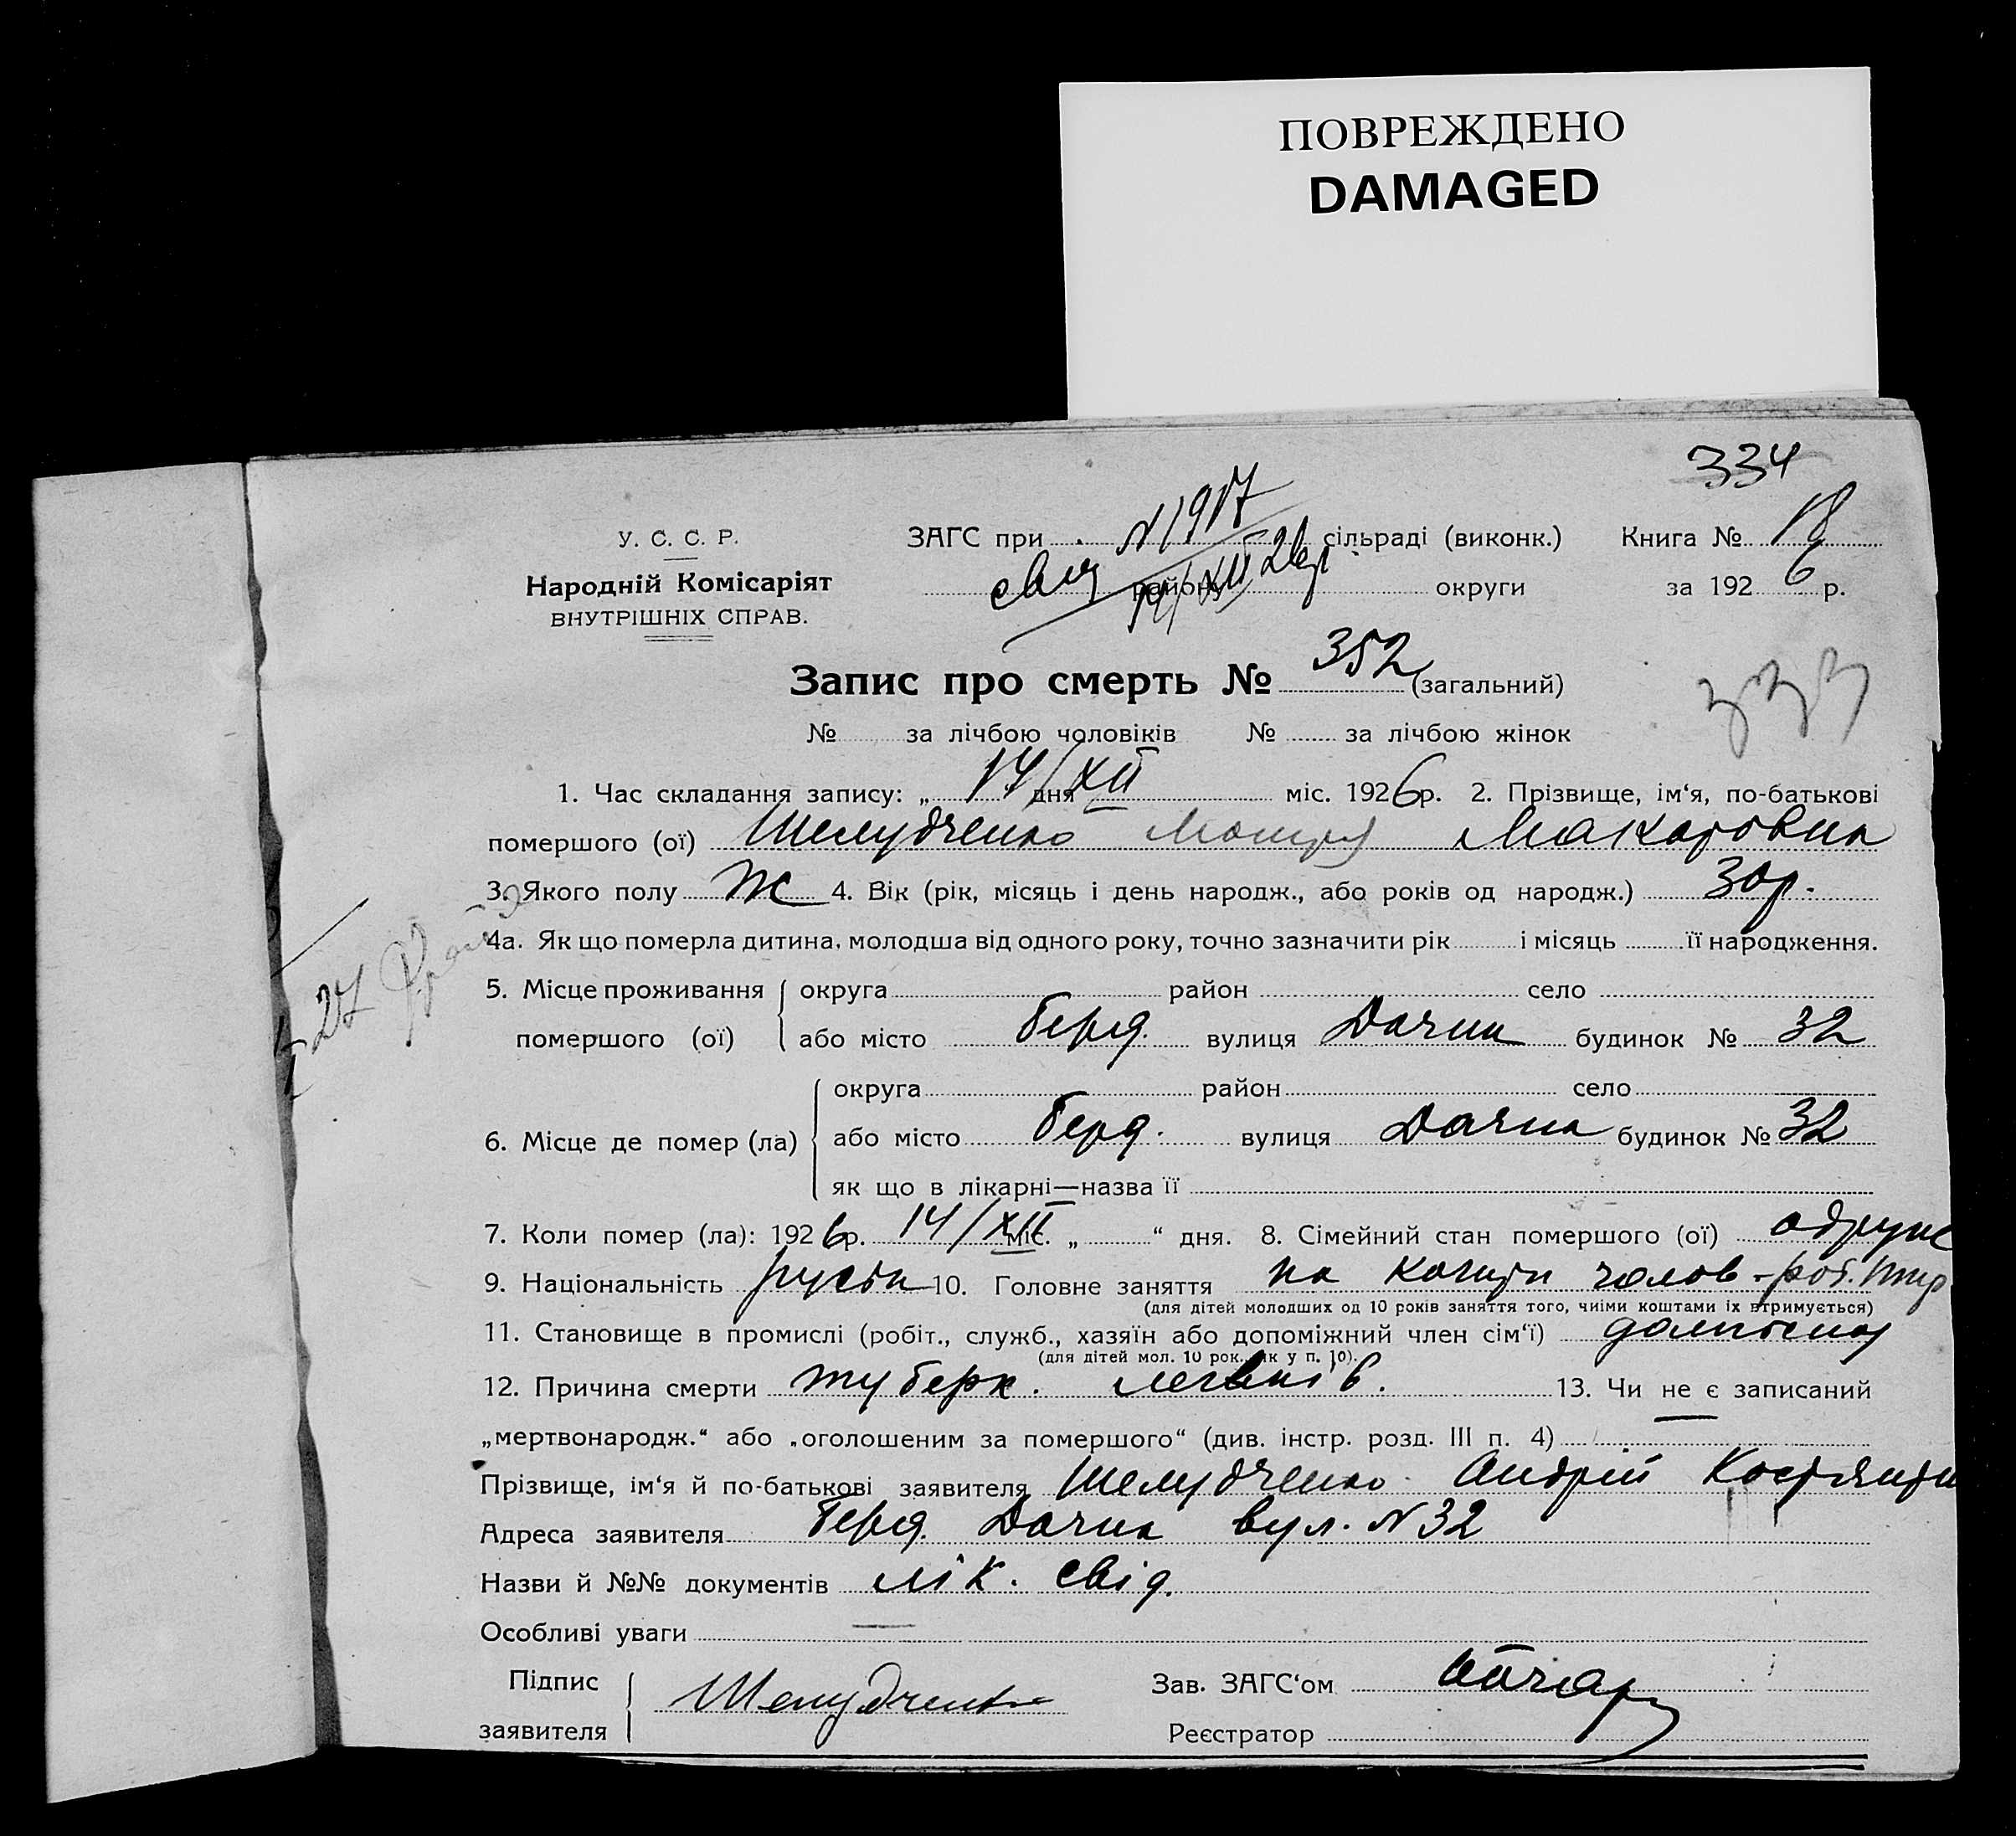 ПОВРЕЖДЕНО
DAMAGED
334
У. С. С. Р.
Народній Комісаріят
ВНУТРІШНІХ СПРАВ.
ЗАГС при N 1917 сільраді (виконк.) Книга № 18
свід району 14/XII 26 р. округи за 1926 р.
Запис про смерть № 352 (загальний)
333
№ за лічбою чоловіків № за лічбою жінок
1. Час складання запису: „ 14/XII дня міс. 1926 р. 2. Прізвище, ім‘я, по-батькові
помершого (ої) Шелудченко Мотря Макаровна
3. Якого полу Ж 4. Вік (рік, місяць і день народж., або років од народж.) 30 р.
4а. Як що померла дитина, молодша від одного року, точно зазначити рік і місяць її народження.
27
5. Місце проживання помершого (ої) округа район село
або місто Берд. вулиця Дачна будинок № 32
6. Місце де помер (ла) округа район село
або місто Берд. вулиця Дачна будинок № 32
як що в лікарні—назва її
7. Коли помер (ла): 1926 р. 14/XII міс. „ “ дня. 8. Сімейний стан помершого (ої) одруже
9. Національність руська 10. Головне заняття на кошти чолов - роб.
(для дітей молодших од 10 років заняття того, чиїми коштами їх втримується)
11. Становище в промислі (робіт., служб., хазяїн або допоміжний член сім‘ї)
(для дітей мол. 10 рок., як у п. 10).
12. Причина смерти туберк. легенів. 13. Чи не є записаний
„мертвонародж.“ або „оголошеним за помершого“ (див. інстр. розд. III п. 4)
Прізвище, ім‘я й по-батькові заявителя Шелудченко Андрій Костянти
Адреса заявителя Берд. Дачна вул. N 32
Назви й №№ документів лік. свід.
Особливі уваги —
Підпис заявителя Шелудченко Зав. ЗАГС‘ом
Реєстратор